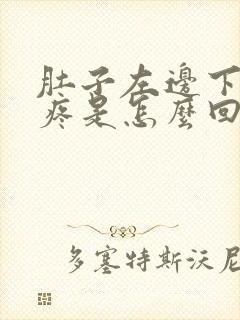 肚子左邊下
疼是怎麼回
多塞特斯沃尼